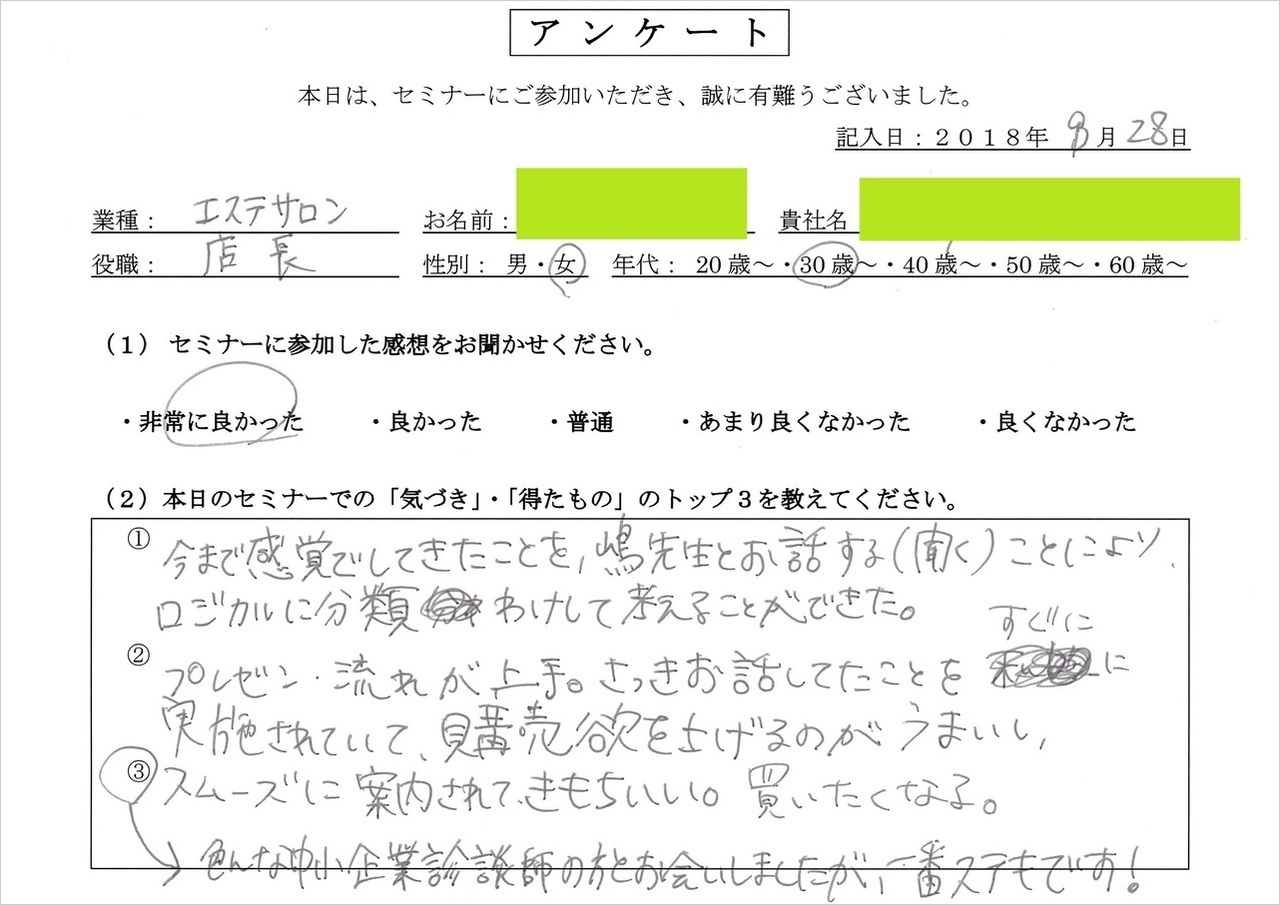 アンケート
本日は、セミナーにご参加いただき、誠に有難うございました。
記入日：２０１８年 8月 28日
業種： エステサロン お名前： 貴社名
役職： 店長 性別： 男・女 年代： 20歳～・30歳～・40歳～・50歳～・60歳～
（１） セミナーに参加した感想をお聞かせください。
・非常に良かった ・良かった ・普通 ・あまり良くなかった ・良くなかった
（２）本日のセミナーでの「気づき」・「得たもの」のトップ３を教えてください。
① 今まで感覚でしてきたことを、嶋先生とお話する（聞く）ことにより、
ロジカルに分類わけして考えることができた。
すぐに
② プレゼン・流れが上手。さっきお話してたことを に
実施されていて、購売欲を上げるのがうまいし、
③ スムーズに案内されて、きもちいい。買いたくなる。
→ 色んな中小企業診談師の方とお会いしましたが、一番ステキです！